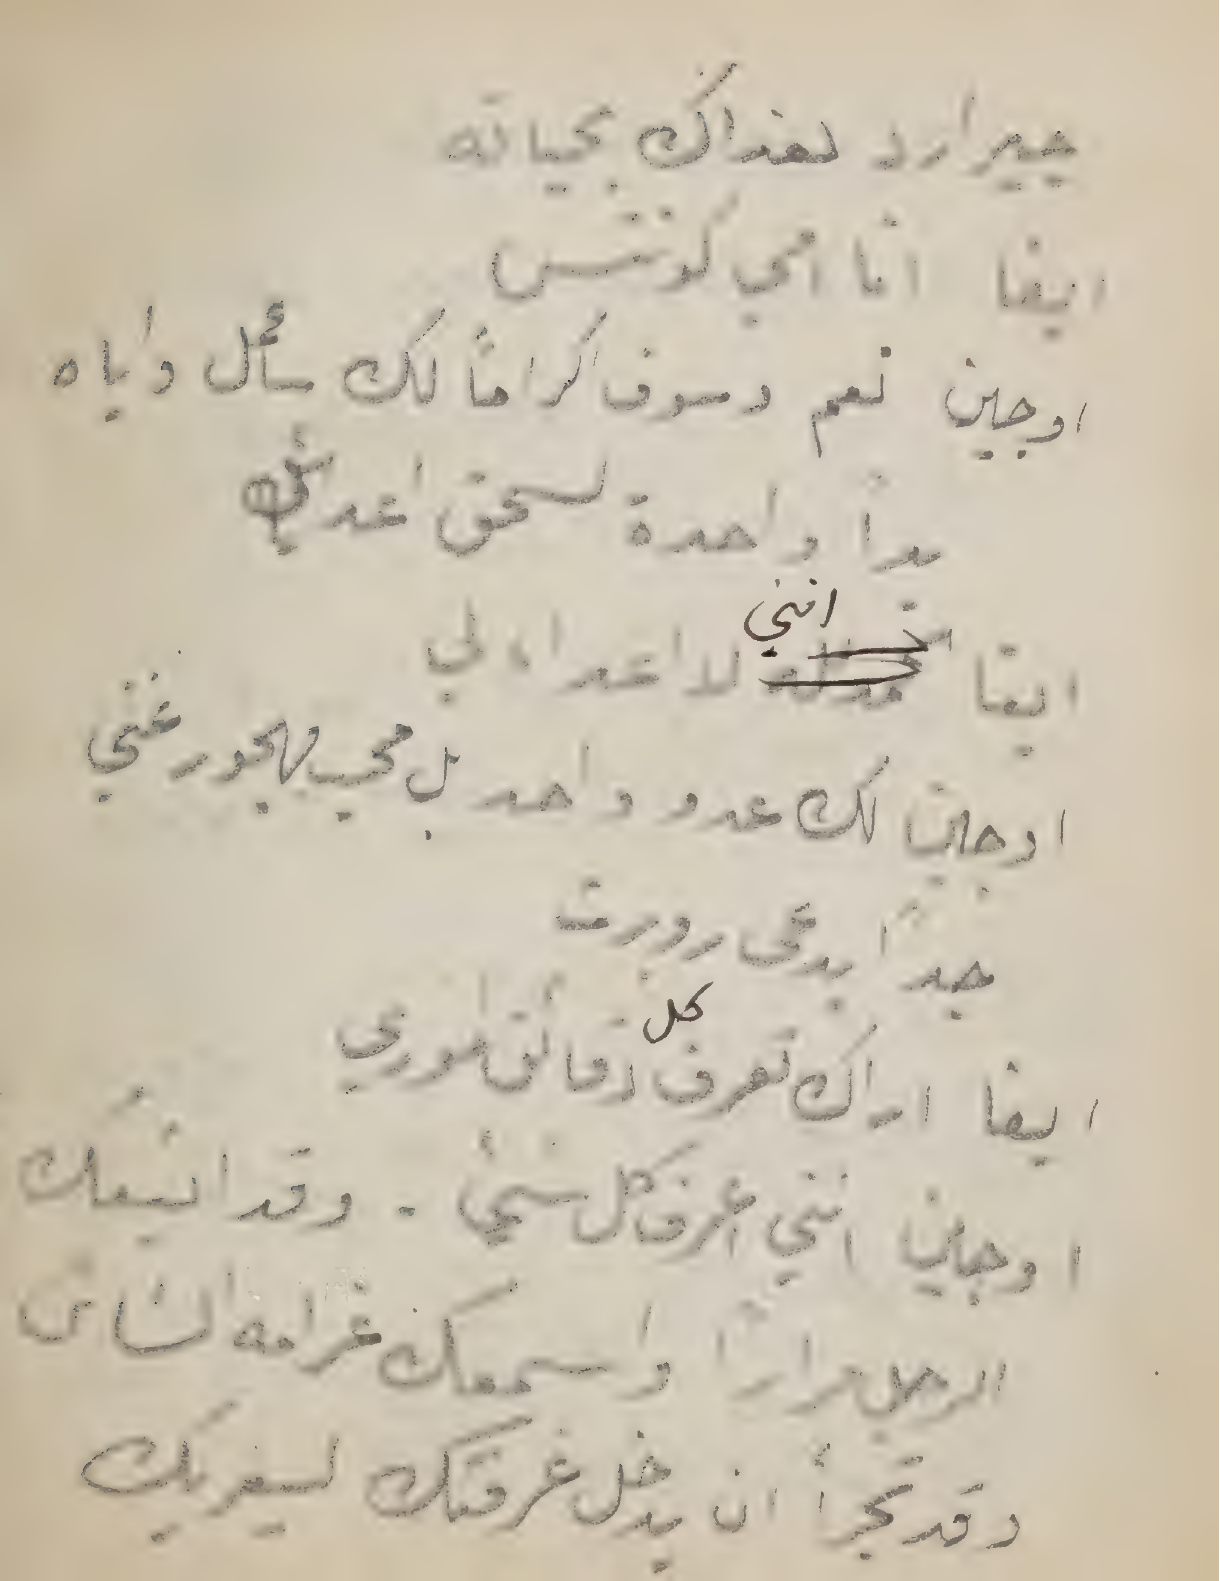 جيرارد لفداك بحياته
ايفا انا امي كونتس
اوجين نعم وسوف اكراماً لك سأمل واياه
يداً واحدة لسحق اعدائك
ايفا انني لا اعداء لي
اوجين لك عدو واحد بل محب مهجور غني
جداً يدعى روبرت
ايفا اراك تعرف كل دقائق اموري
اوجين انني اعرف كل شيء - وقد اتبعك
الرجل مراراً واسمعك غرامه الشائن
وقد تجرأ ان يدخل غرفتك ليغريك